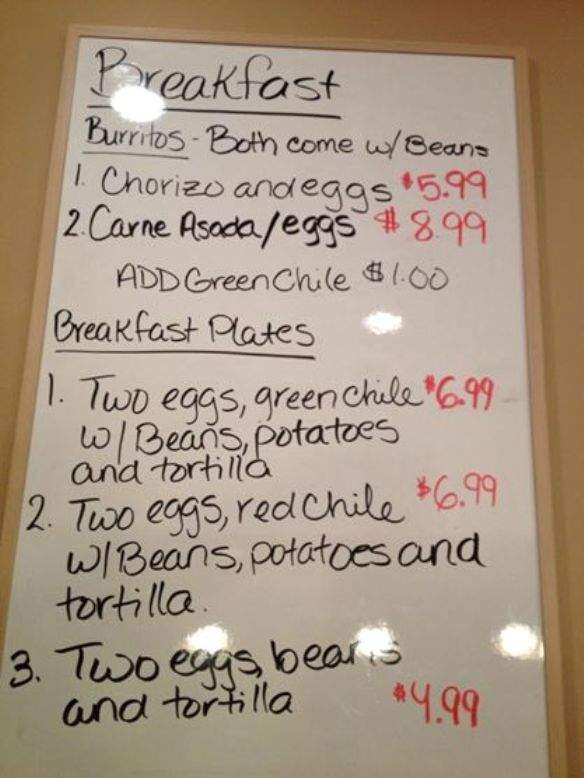 Breakfast
Burritos - Both come w/ Beans
1. Chorizo and eggs $5.99
2. Carne Asada/eggs $8.99
ADD Green Chile $1.00
Breakfast Plates
1. Two eggs, green chile $6.99
w/ Beans, potatoes
and tortilla
2. Two eggs, red chile $6.99
w/ Beans, potatoes and
tortilla.
3. Two eggs, beans
and tortilla $4.99